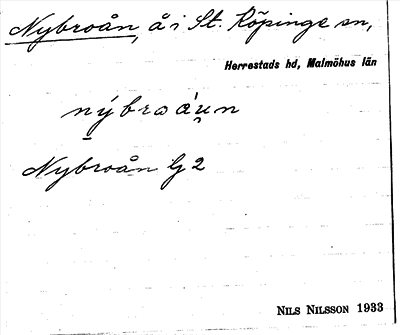 Nybroån, å i St. Köpinge sn,
Herrestads hd, Malmöhus län
nýbroa̋u̯n
Nybroån G 2
NILS NILSSON 1933